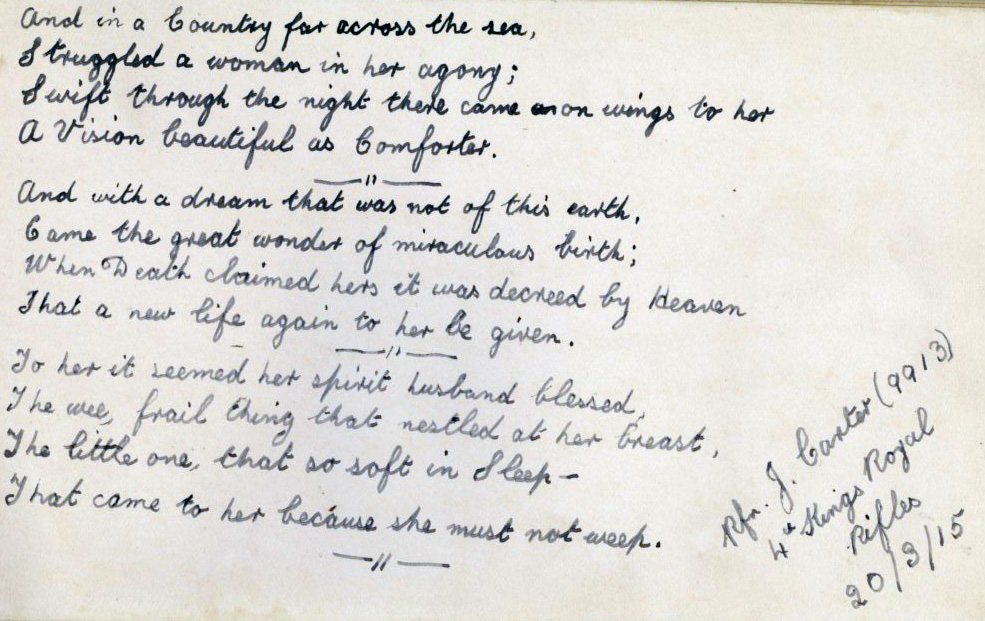 And in a Country far across the sea,
Struggled a woman in her agony;
Swift through the night there came on wings to her
A Vision beautiful as Comforter.
—"—
And with a dream that was not of this earth,
Came the great wonder of miraculous birth;
When Death claimed hers it was decreed by Heaven
That a new life again to her be given.
—"—
To her it seemed her spirit husband blessed,
The wee, frail thing that nestled at her breast,
The little one, that so soft in Sleep—
That came to her because she must not weep.
—"—
Rfn. J. Carter (9913)
4th Kings Royal
Rifles
20/3/15